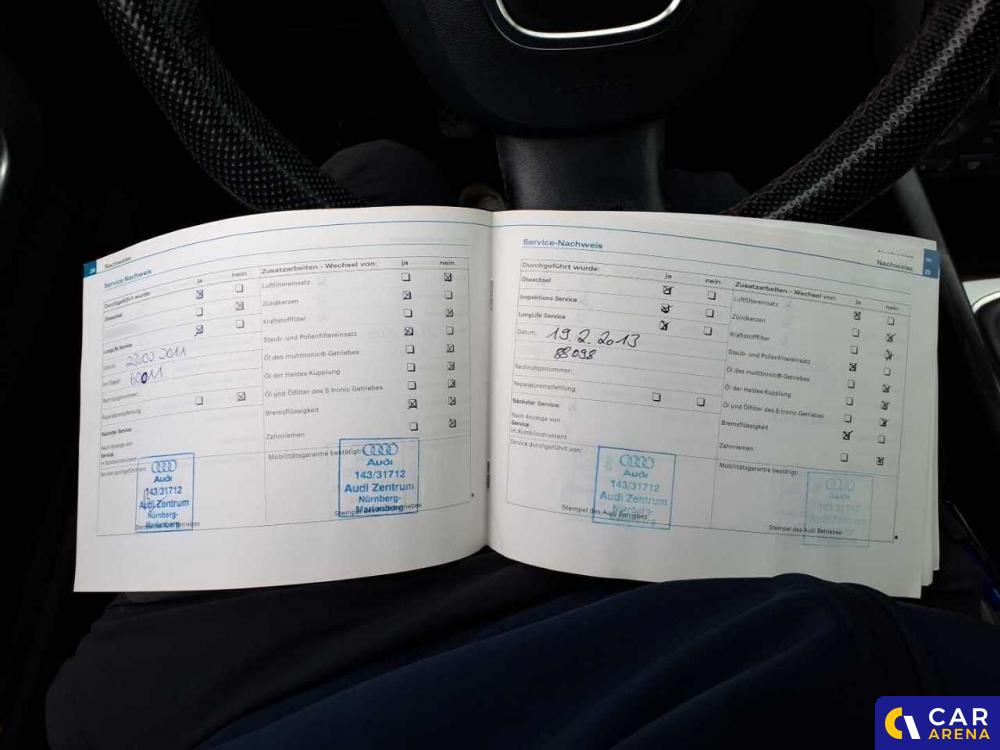 24 Nachweise
Service-Nachweis
ja nein
Durchgeführt wurde:
Ölwechsel
LongLife Service
Datum: 23.02.2011
km-Stand: 60011
Rechnungsnummer:
Reparaturempfehlung
Nächster Service
Nach Anzeige von
Service
im Kombiinstrument
Service durchgeführt von:
Audi
143/31712
Audi Zentrum
Nürnberg-
Marienberg
Zusatzarbeiten - Wechsel von: ja nein
Luftfiltereinsatz
Zündkerzen
Kraftstofffilter
Staub- und Pollenfiltereinsatz
Öl des multitronic®-Getriebes
Öl der Haldex-Kupplung
Öl und Ölfilter des S tronic Getriebes
Bremsflüssigkeit
Zahnriemen
Mobilitätsgarantie bestätigt:
Audi
143/31712
Audi Zentrum
Nürnberg-
Marienberg
Nachweise 25
Service-Nachweis
Durchgeführt wurde: ja nein
Ölwechsel
Inspektions Service
LongLife Service
Datum: 19.2.2013
88098
Rechnungsnummer:
Reparaturempfehlung
Nächster Service:
Nach Anzeige von
Service
im Kombiinstrument
Service durchgeführt von:
Audi
143/31712
Audi Zentrum
Stempel des Audi Betriebes
Zusatzarbeiten - Wechsel von: ja nein
Luftfiltereinsatz
Zündkerzen
Kraftstofffilter
Staub- und Pollenfiltereinsatz
Öl des multitronic®-Getriebes
Öl der Haldex-Kupplung
Öl und Ölfilter des S tronic Getriebes
Bremsflüssigkeit
Zahnriemen
Mobilitätsgarantie bestätigt:
Audi
143/31712
Stempel des Audi Betriebes
CAR
ARENA